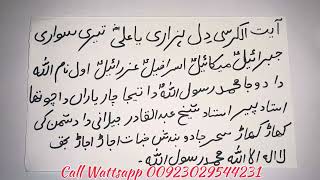 آیت الکرسی دل ہزاری یا علیؓ تیری سواری
جبرائیلؑ میکائیلؑ اسرافیلؑ عزرائیلؑ اول نام اللہ
دا دوجا محمد رسول اللہ دا تیجا چار یاراں دا چوتھا
استاد پیر استاد شیخ عبدالقادر جیلانی دا دشمن کی
سحر جادو بندش جنات اجاڑ اجاڑ بحق
لا الہ الا اللہ محمد رسول اللہ۔
Call Wattsapp 00923029544231